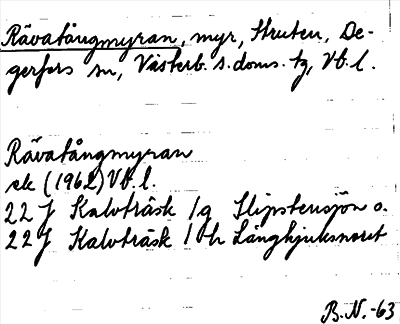 Rävatångmyran, myr, Struten, De-
gerfors sn, Västerb. s. doms. tg, Vb. l.
Rävatångmyran
ek (1962) Vb. l.
22 J Kalvträsk 1g Slipstensjön o.
22 J Kalvträsk 1h Långhjuksnoret
B. N. -63